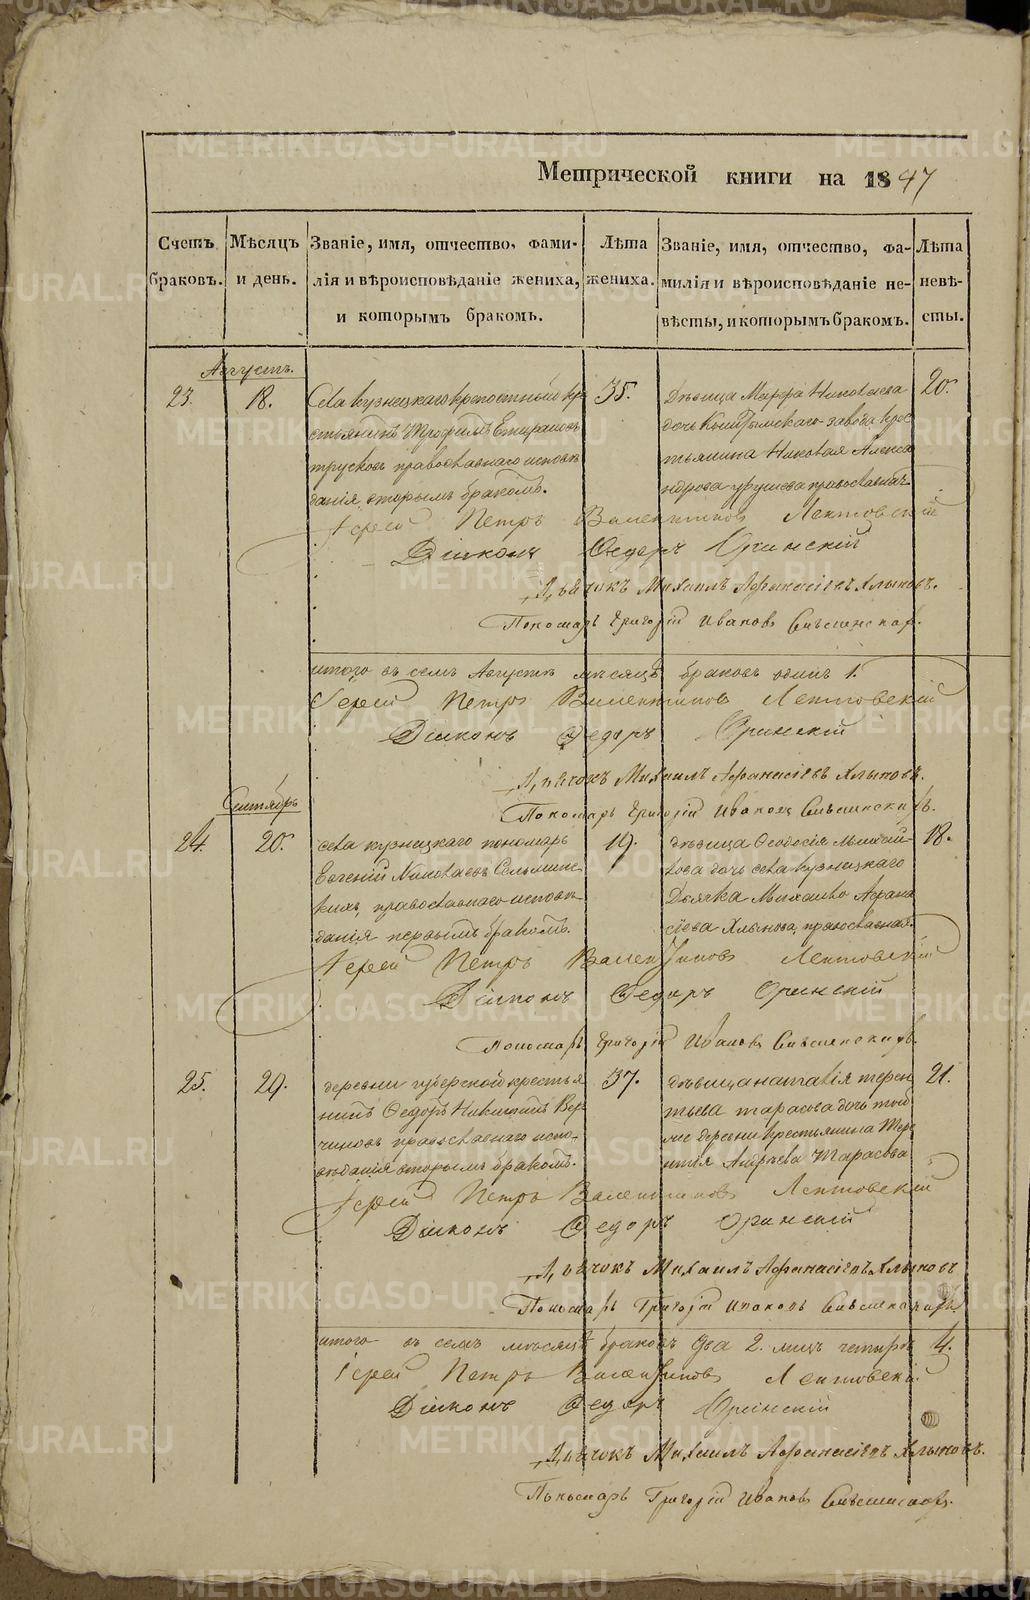 Метрической книги на 1847
Счетъ браковъ.
Мѣсяцъ и день.
Званіе, имя, отчество, фами-
лія и вѣроисповѣданіе жениха,
и которымъ бракомъ.
Лѣта жениха.
Званіе, имя, отчество, фа-
милія и вѣроисповѣданіе не-
вѣсты, и которымъ бракомъ.
Лѣта невѣ-
сты.
Августъ.
23. 18.
Села кузнецкаго крепостный кре
стьянинъ Трофимъ
православнаго исповѣ
данія, вторымъ бракомъ.
35.
дѣвица Марфа Николаева
дочь Кыштымскаго завода крес
тьянина Николая Алекса
ндрова православнаг
20.
Іерей Петръ Валентиновъ Лептовский
Діаконъ Ѳедоръ Оринскій
Дьячокъ Михаилъ Афанасіевъ Хлыновъ.
Пономарь Григорій Ивановъ
итого въ семъ Августѣ мѣсяцѣ браковъ одинъ 1.
Іерей Петръ Валентиновъ Лептовскій
Діаконъ Ѳедоръ Оринскій
Дьячокъ Михаилъ Афанасіевъ Хлыновъ.
Пономарь Григорій Ивановъ
Сентябрь
24. 20.
села кузнецкаго пономарь
Евгеній Николаевъ
православнаго исповѣ
данія первымъ бракомъ.
19.
дѣвица Ѳеодосія Михаи
лова дочь села кузнецкаго
Дьячка Михаило Афана
сіева Хлынова, православная
18.
Іерей Петръ Валентиновъ Лептовскій
Діаконъ Ѳедоръ Оринскій
Пономарь Григорій Ивановъ
25. 29.
деревни губернской крестья
нинъ Ѳедоръ Никитинъ
православнаго испо-
вѣданія вторымъ бракомъ.
37.
дѣвица наталія терен
тьева тарасова дочь той
же деревни крестьянина Тере
нтія Андрѣева Тарасова
21.
Іерей Петръ Валентиновъ Лептовскій
Діаконъ Ѳедоръ Оринскій
Дьячокъ Михаилъ Афанасіевъ Хлыновъ
Пономарь Григорій Ивановъ
итого въ семъ мѣсяцѣ браковъ два 2. лицъ четыре 4.
Іерей Петръ Валентиновъ Лептовскій
Діаконъ Ѳедоръ Оринскій
Дьячокъ Михаилъ Афанасіевъ Хлыновъ.
Пономарь Григорій Ивановъ
METRIKI.GASO-URAL.RU